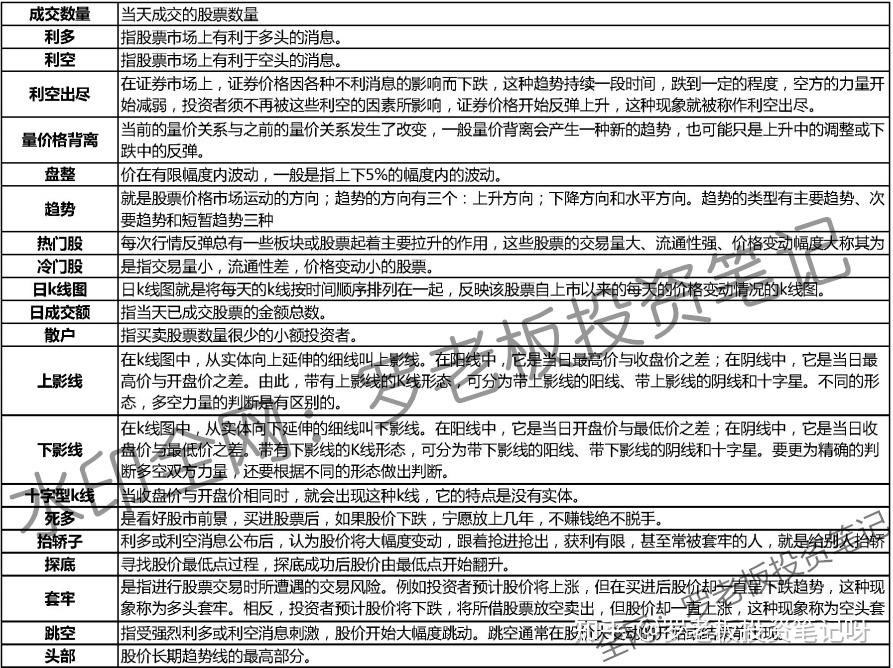 成交数量 当天成交的股票数量
利多 指股票市场上有利于多头的消息。
利空 指股票市场上有利于空头的消息。
利空出尽 在证券市场上，证券价格因各种不利消息的影响而下跌，这种趋势持续一段时间，跌到一定的程度，空方的力量开
始减弱，投资者须不再被这些利空的因素所影响，证券价格开始反弹上升，这种现象就被称作利空出尽。
量价格背离 当前的量价关系与之前的量价关系发生了改变，一般量价背离会产生一种新的趋势，也可能只是上升中的调整或下
跌中的反弹。
盘整 价在有限幅度内波动，一般是指上下5%的幅度内的波动。
趋势 就是股票价格市场运动的方向；趋势的方向有三个：上升方向；下降方向和水平方向。趋势的类型有主要趋势、次
要趋势和短暂趋势三种
热门股 每次行情反弹总有一些板块或股票起着主要拉升的作用，这些股票的交易量大、流通性强、价格变动幅度大称其为
冷门股 是指交易量小，流通性差，价格变动小的股票。
日k线图 日k线图就是将每天的k线按时间顺序排列在一起，反映该股票自上市以来的每天的价格变动情况的k线图。
日成交额 指当天已成交股票的金额总数。
散户 指买卖股票数量很少的小额投资者。
上影线 在k线图中，从实体向上延伸的细线叫上影线。在阳线中，它是当日最高价与收盘价之差；在阴线中，它是当日最
高价与开盘价之差。由此，带有上影线的K线形态，可分为带上影线的阳线、带上影线的阴线和十字星。不同的形
态，多空力量的判断是有区别的。
下影线 在k线图中，从实体向下延伸的细线叫下影线。在阳线中，它是当日开盘价与最低价之差；在阴线中，它是当日收
盘价与最低价之差。带有下影线的K线形态，可分为带下影线的阳线、带下影线的阴线和十字星。要更为精确的判
断多空双方力量，还要根据不同的形态做出判断。
十字型k线 当收盘价与开盘价相同时，就会出现这种k线，它的特点是没有实体。
死多 是看好股市前景，买进股票后，如果股价下跌，宁愿放上几年，不赚钱绝不脱手。
抬轿子 利多或利空消息公布后，认为股价将大幅度变动，跟着抢进抢出，获利有限，甚至常被套牢的人，就是给别人抬轿
探底 寻找股价最低点过程，探底成功后股价由最低点开始翻升。
套牢 是指进行股票交易时所遭遇的交易风险。例如投资者预计股价将上涨，但在买进后股价却一直呈下跌趋势，这种现
象称为多头套牢。相反，投资者预计股价将下跌，将所借股票放空卖出，但股价却一直上涨，这种现象称为空头套
跳空 指受强烈利多或利空消息刺激，股价开始大幅度跳动。跳空通常在股价大变动的开始或结束前出现。
头部 股价长期趋势线的最高部分。
水印全网：罗老板投资笔记
全网：罗老板投资笔记
知乎 @罗老板投资笔记呀